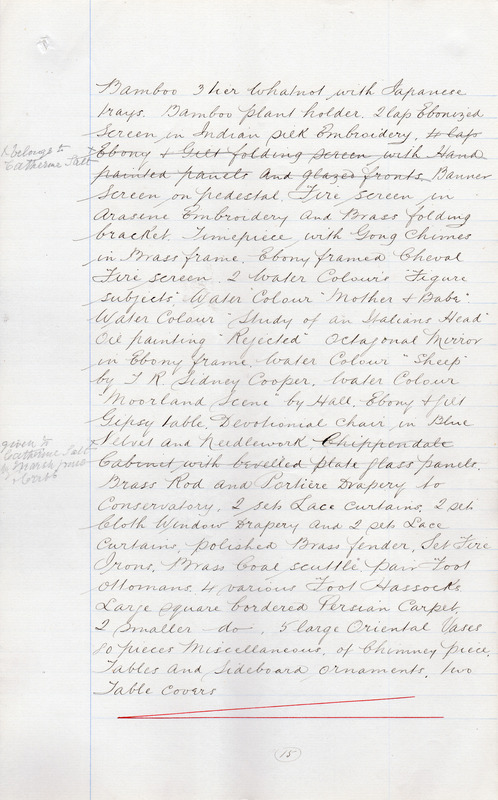 Bamboo 3 tier Whatnot with Japanese
trays. Bamboo plant holder. 2 lap Ebonized
Screen in Indian silk Embroidery. 4 lap
x belongs to
Catherine Salt
Ebony & Gilt folding screen with Hand
painted panels and glazed fronts. Banner
Screen on pedestal. Fire screen in
Arasene Embroidery and Brass folding
bracket. Timepiece with Gong Chimes
in Brass frame. Ebony framed Cheval
Fire screen. 2 Water Colours "Figure
subjects". Water Colour "Mother & Babe"
Water Colour "Study of an Italians Head"
Oil painting "Rejected" Octagonal Mirror
in Ebony frame. Water Colour "Sheep"
by T. R. Sidney Cooper. Water Colour
"Moorland Scene" by Hall. Ebony & gilt
Gipsy table. Devotional Chair in Blue
given to
Catherine Salt
by March
Velvet and Needlework. Chippendale
Cabinet with bevelled plate glass panels.
Brass Rod and Portière Drapery to
Conservatory. 2 sets Lace Curtains. 2 sets
Cloth Window Drapery and 2 sets Lace
Curtains. polished Brass fender. Set Fire
Irons. Brass Coal scuttle. pair Foot
Ottomans. 4 various Foot Hassocks.
Large square bordered Persian Carpet.
2 smaller do. 5 large Oriental Vases
80 pieces Miscellaneous, of Chimney piece,
Tables and Sideboard Ornaments. Two
Table Covers
15